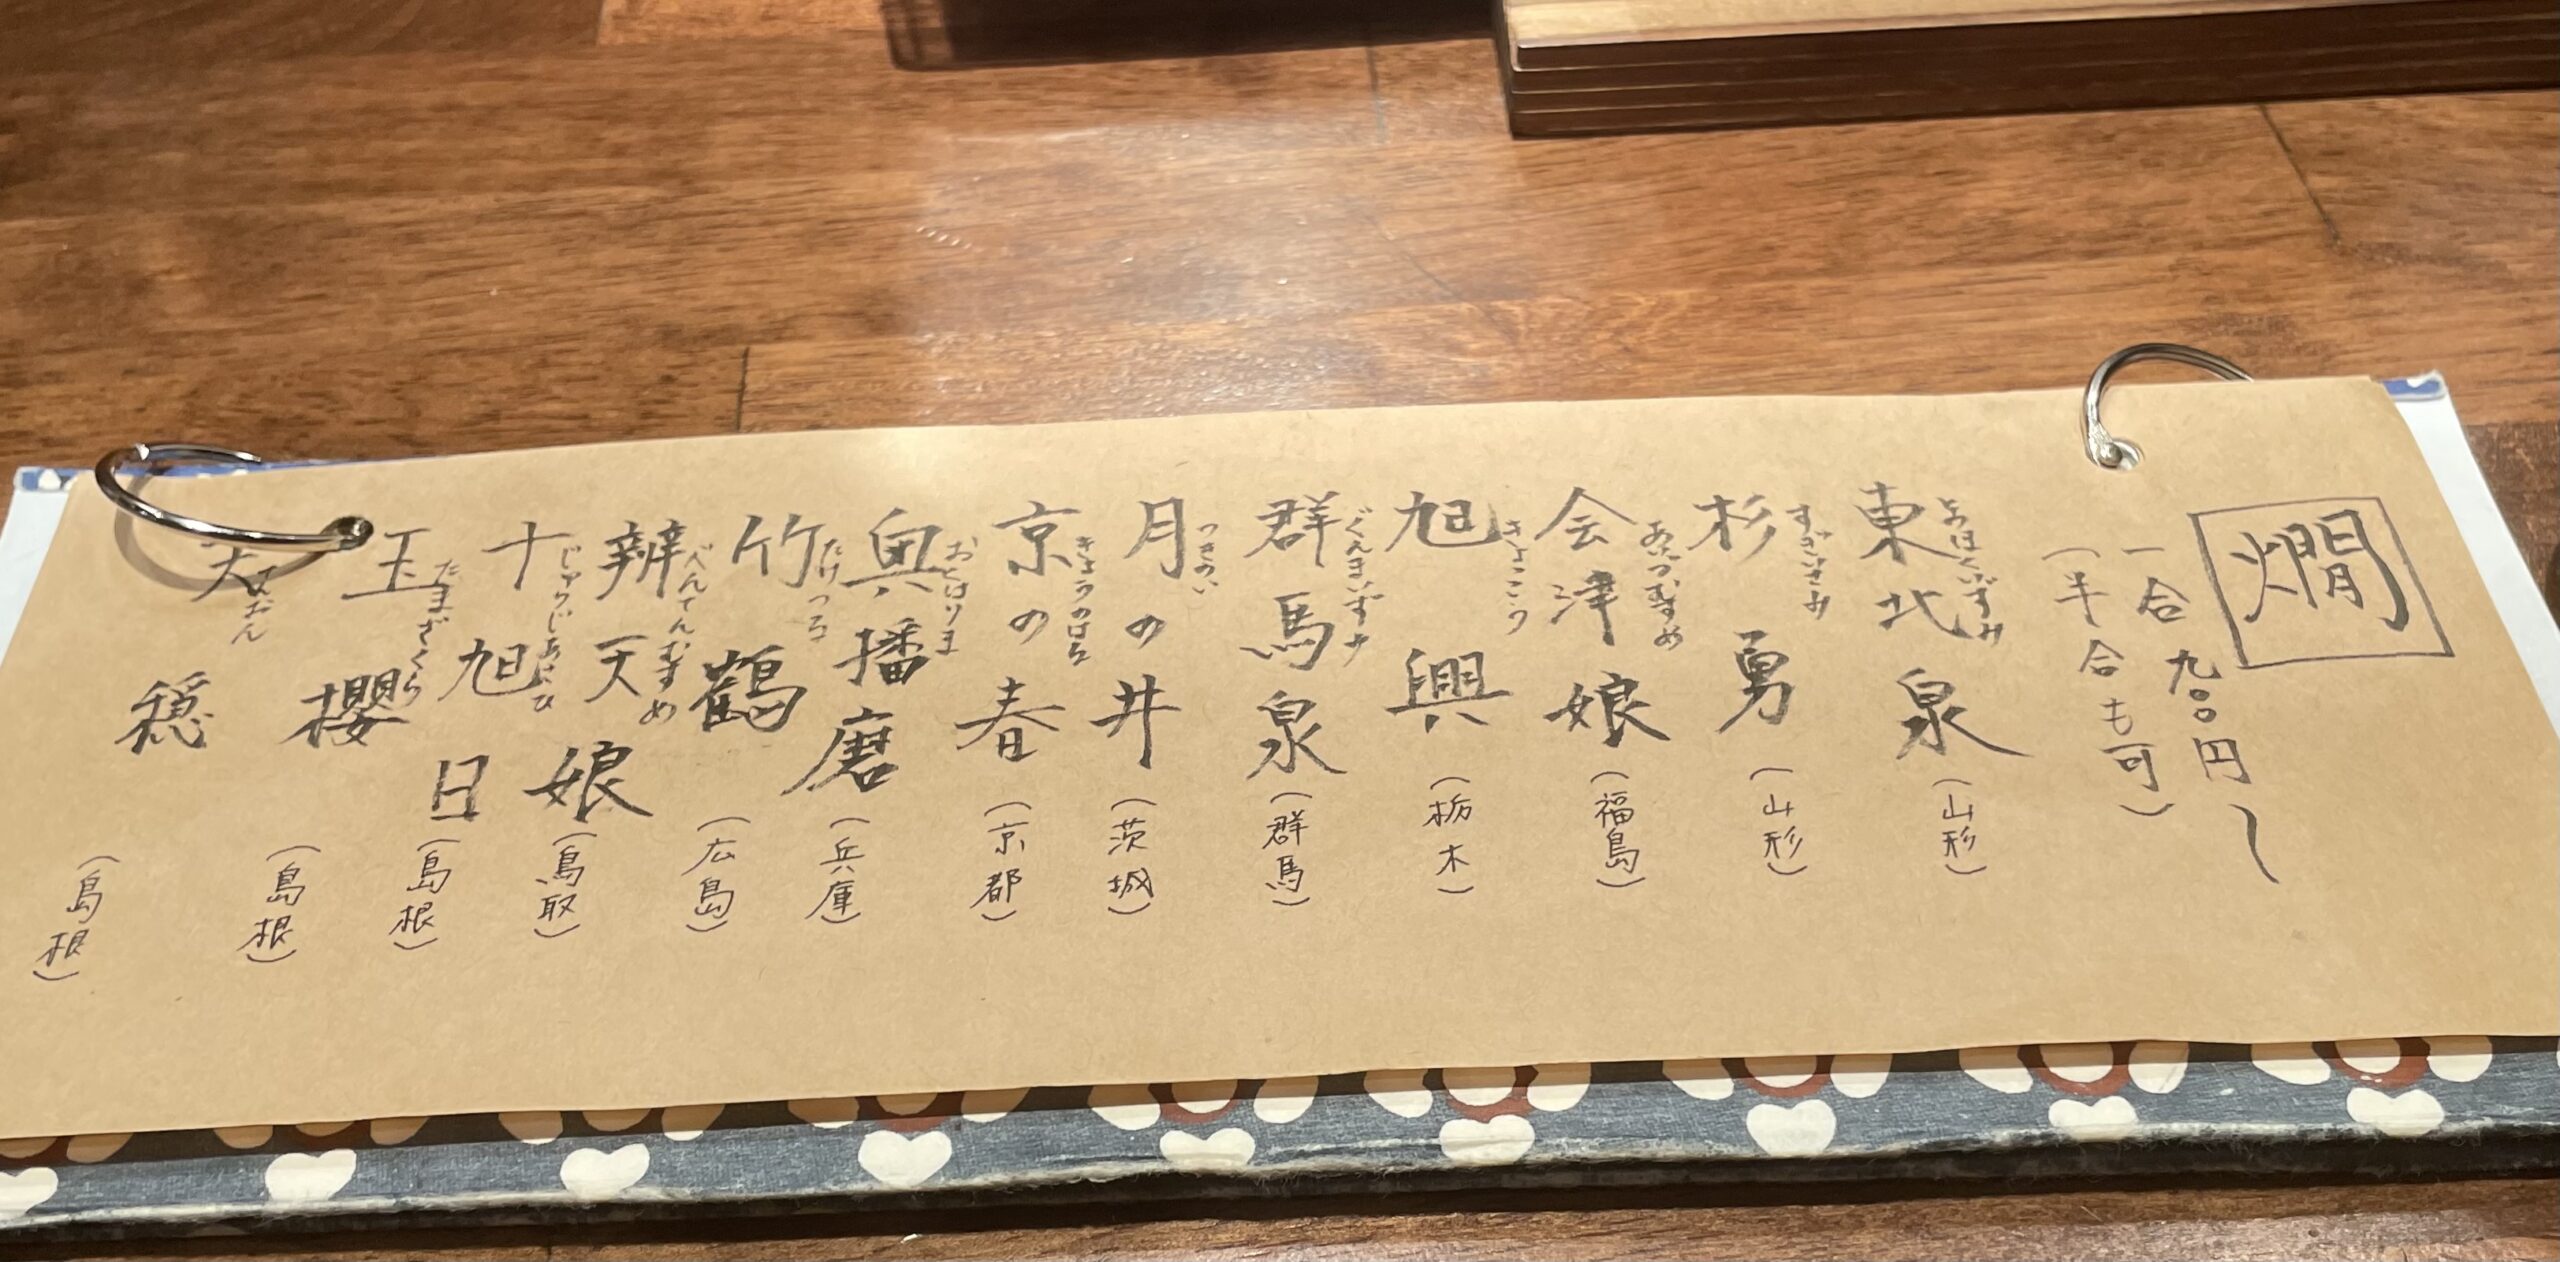 燗
一合 九〇〇円〜
(半合も可)
とおほくいずみ
東北泉 (山形)
すぎいさみ
杉勇 (山形)
あいづむすめ
会津娘 (福島)
きょくこう
旭興 (栃木)
ぐんまいずみ
群馬泉 (群馬)
つきのい
月の井 (茨城)
きょうのはる
京の春 (京都)
おくはりま
奥播磨 (兵庫)
たけつる
竹鶴 (広島)
べんてんむすめ
辨天娘 (鳥取)
じゅうじあさひ
十旭日 (島根)
たまざくら
玉櫻 (島根)
てんおん
天穏 (島根)